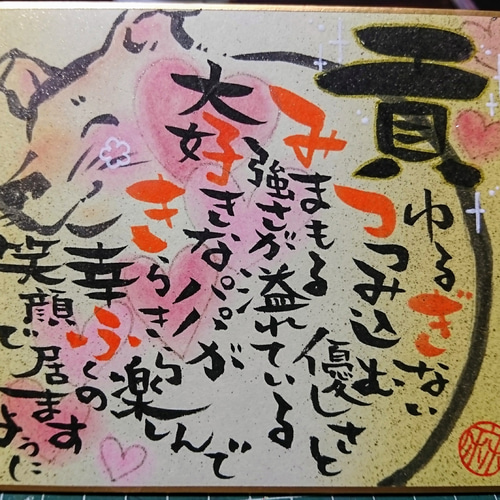 貢
ゆるぎない
つつみ込む
みまもる優しさと
強さが溢れている
大好きなパパが
きらきら楽しんで
幸ふくの
笑顔で居ます
ように